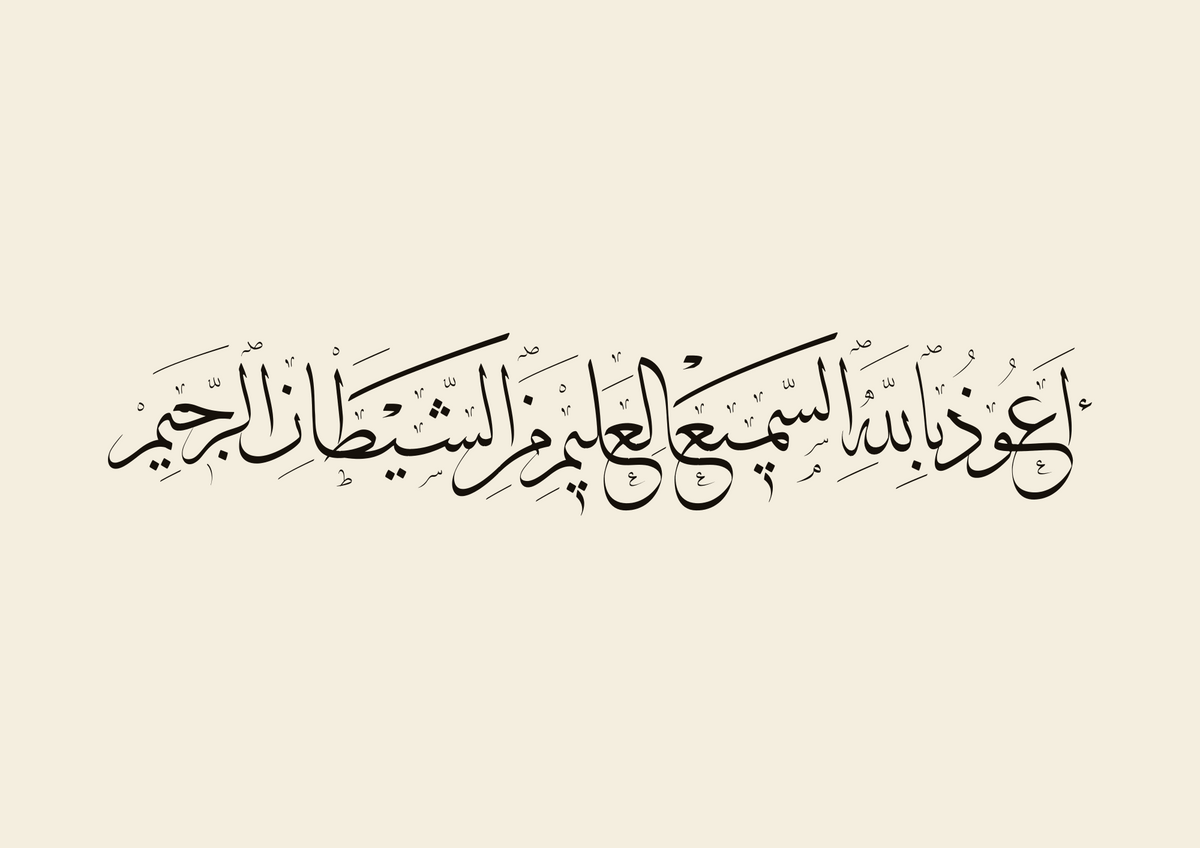 أَعُوذُ بِاللَّهِ السَّمِيعِ الْعَلِيمِ مِنَ الشَّيْطَانِ الرَّجِيمِ